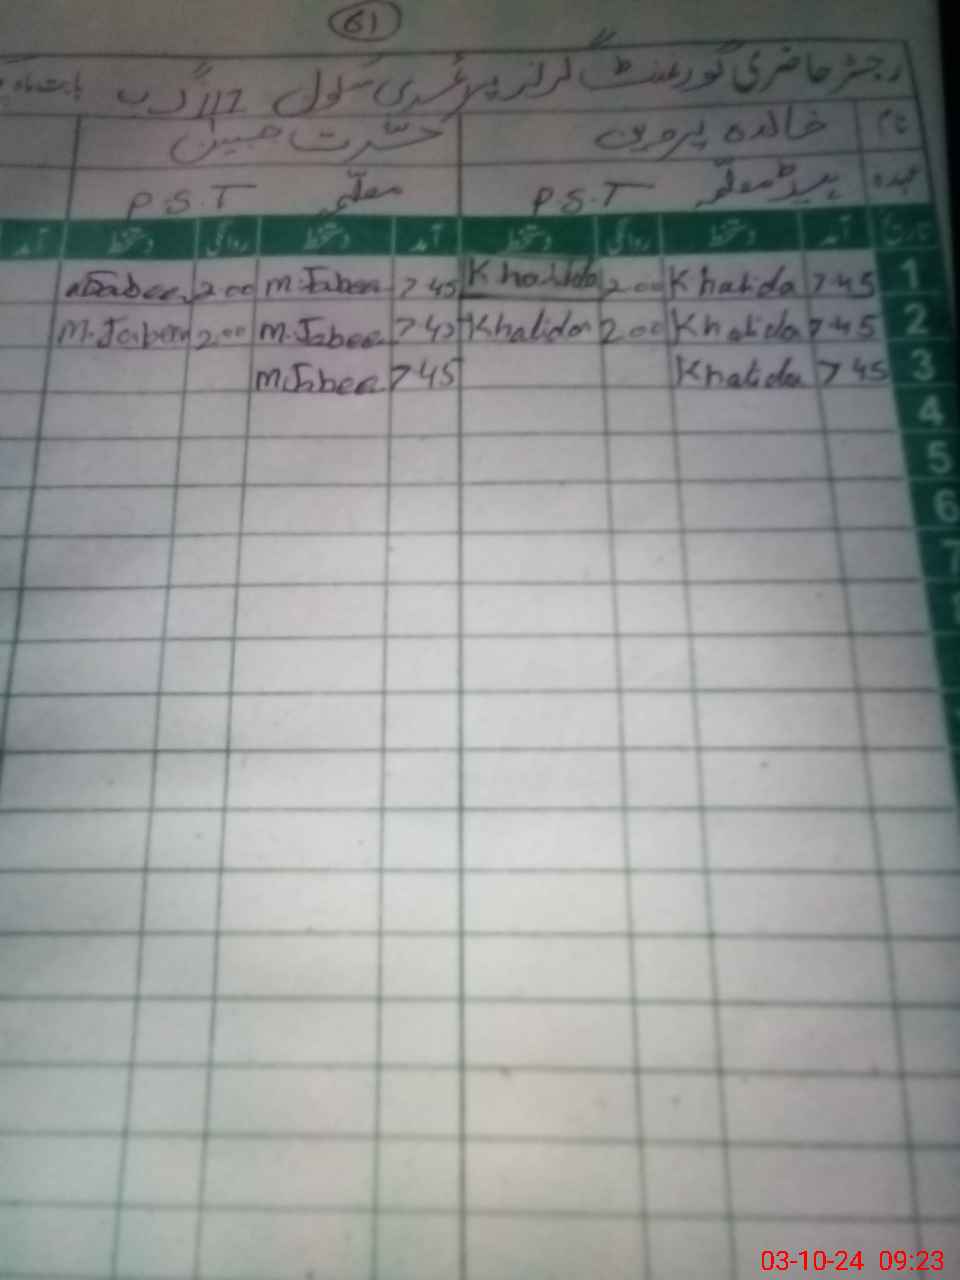 61
رجسٹر حاضری گورنمنٹ گرلز پرائمری سکول 217 گ ب بابت ماہ
نام خالدہ پروین مسرت جبین
عہدہ ہیڈ معلمہ P.S.T معلمہ P.S.T
تاریخ آمد دستخط روانگی دستخط آمد دستخط روانگی دستخط آمد
1 7 45 Khalida 2.00 Khalida 7 45 M.Jabeen 2.00 Jabeen
2 7 45 Khalida 2.00 Khalida 7 45 M.Jabeen 2.00 M.Jabeen
3 7 45 Khalida 7 45 M.Jabeen
4
5
6
7
03-10-24 09:23